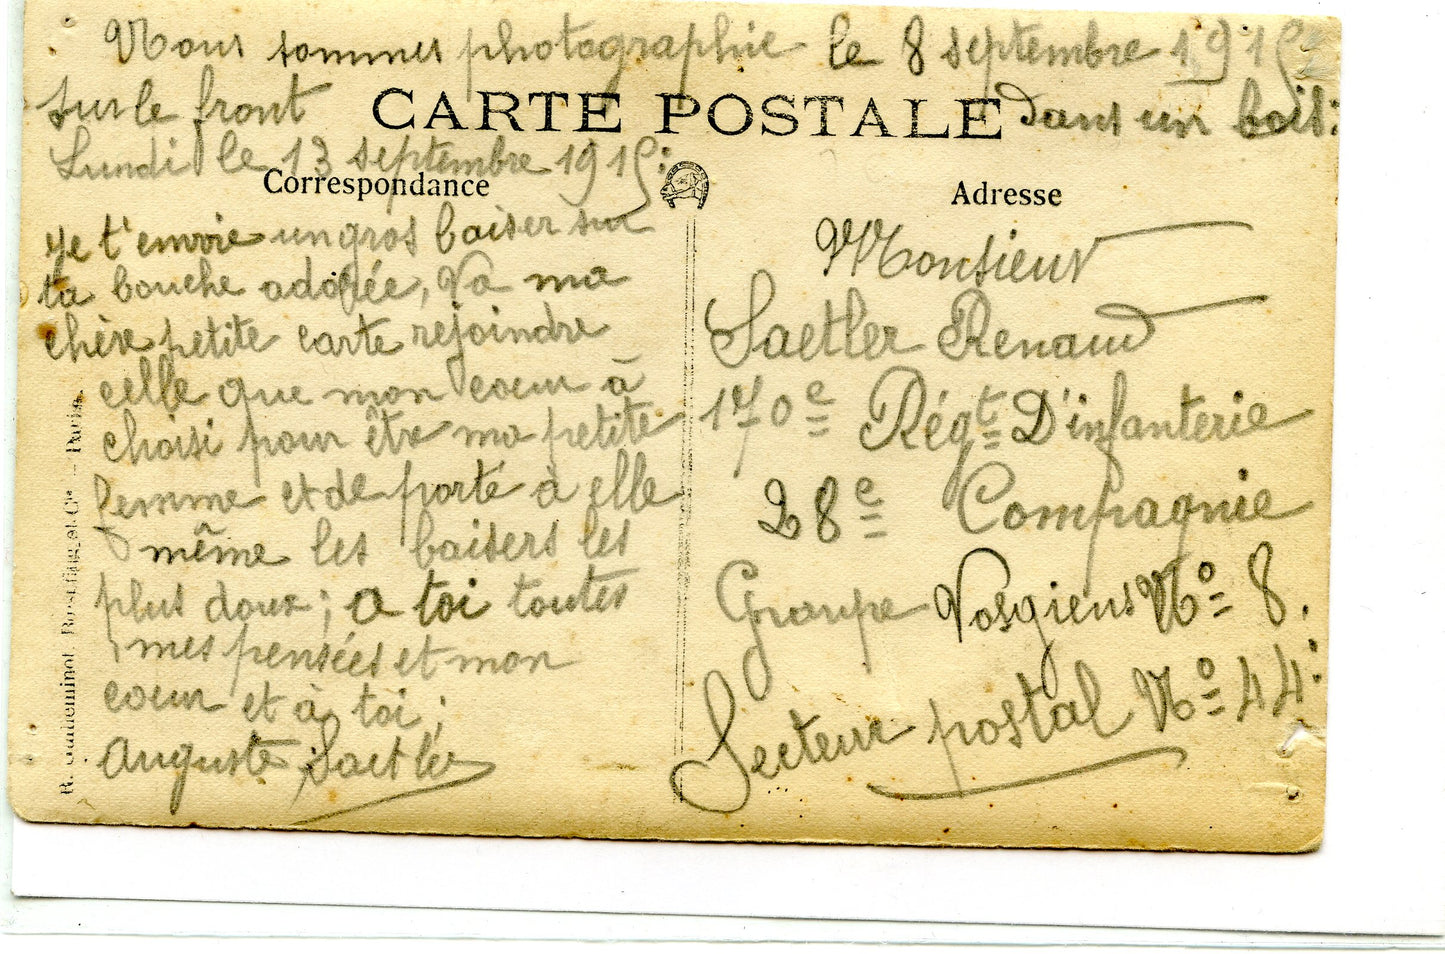 Nous sommes photographie le 8 septembre 1915
sur le front dans un bois:
CARTE POSTALE
Lundi le 13 septembre 1915:
Correspondance
Je t'envoie un gros baiser sur
ta bouche adorée, Va ma
chère petite carte rejoindre
celle que mon coeur à
choisi pour être ma petite
femme et de porté à elle
même les baisers les
plus doux; a toi toutes
mes pensées et mon
coeur et à toi;
Auguste Saetler
Adresse
Monsieur
Saetler Renaud
170e Régt D'infanterie
28e Compagnie
Groupe Vosgiens No 8.
Secteur postal No 44:
R. Guilleminot, Bœspflug et Cie - Paris